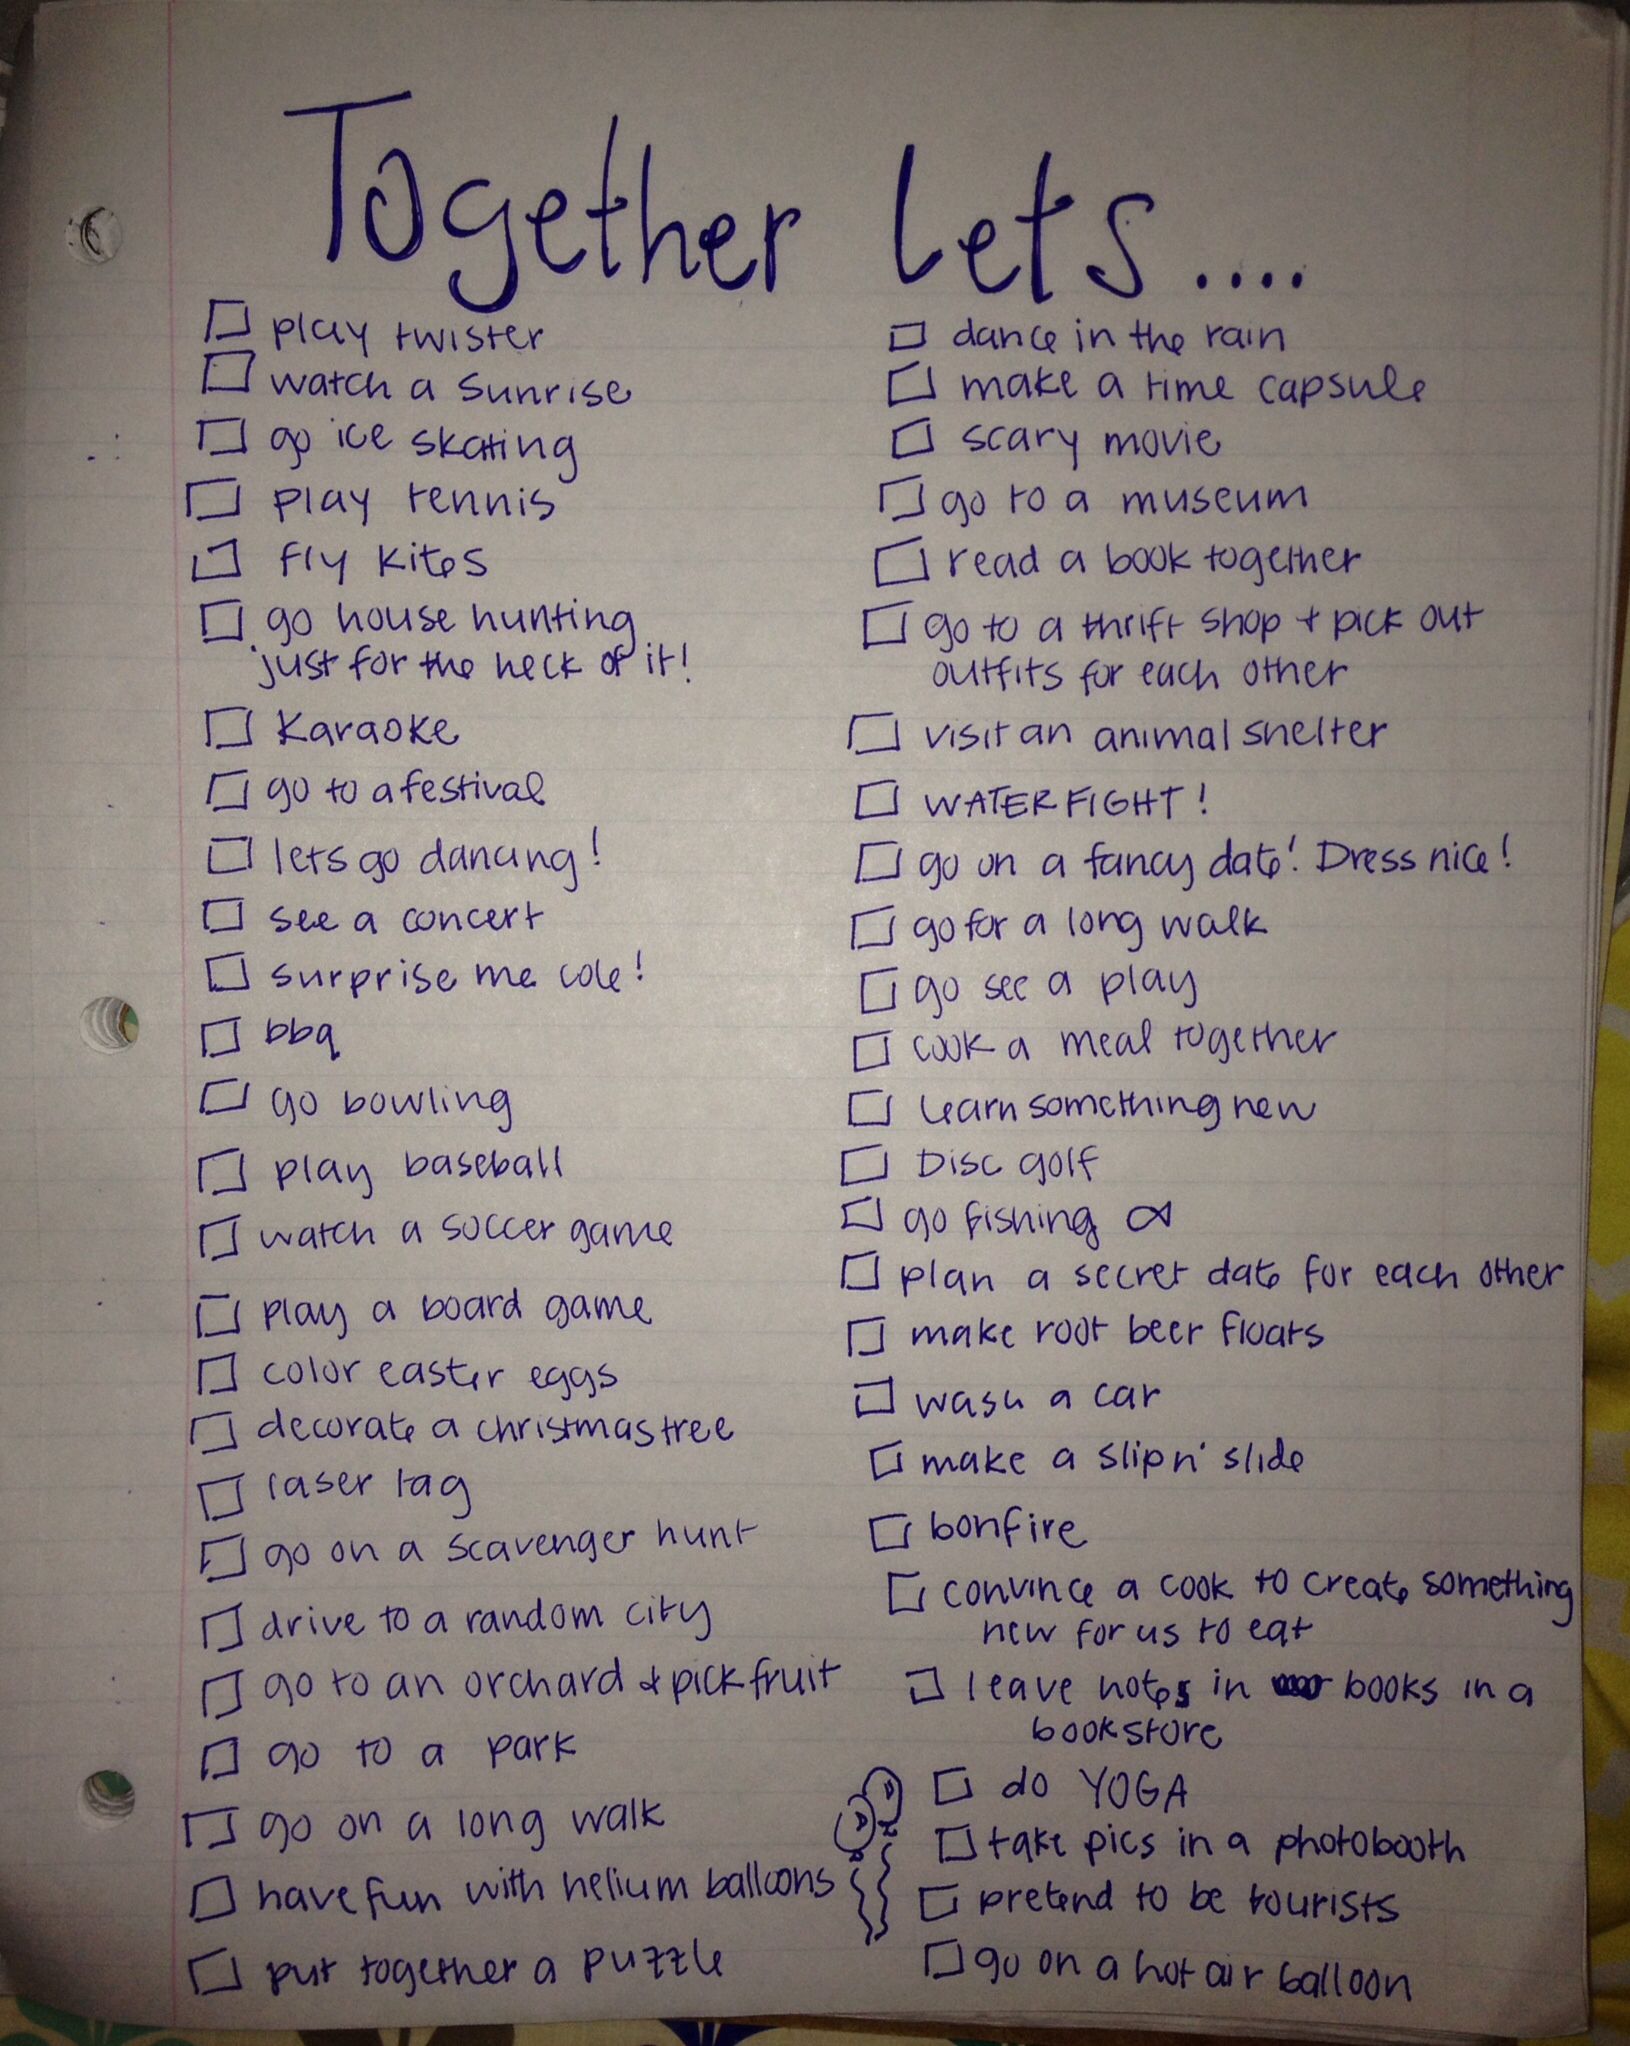 Together Lets....
play twister
watch a sunrise
go ice skating
play tennis
fly kites
go house hunting
just for the heck of it!
Karaoke
go to a festival
lets go dancing!
see a concert
surprise me cole!
bbq
go bowling
play baseball
watch a soccer game
play a board game
color easter eggs
decorate a christmas tree
laser tag
go on a scavenger hunt
drive to a random city
go to an orchard + pick fruit
go to a park
go on a long walk
have fun with helium balloons
put together a puzzle
dance in the rain
make a time capsule
scary movie
go to a museum
read a book together
go to a thrift shop + pick out
outfits for each other
visit an animal shelter
WATER FIGHT!
go on a fancy date! Dress nice!
go for a long walk
go see a play
cook a meal together
learn something new
Disc golf
go fishing
plan a secret date for each other
make root beer floats
wash a car
make a slip n' slide
bonfire
convince a cook to create something
new for us to eat
leave notes in books in a
bookstore
do YOGA
take pics in a photobooth
pretend to be tourists
go on a hot air balloon